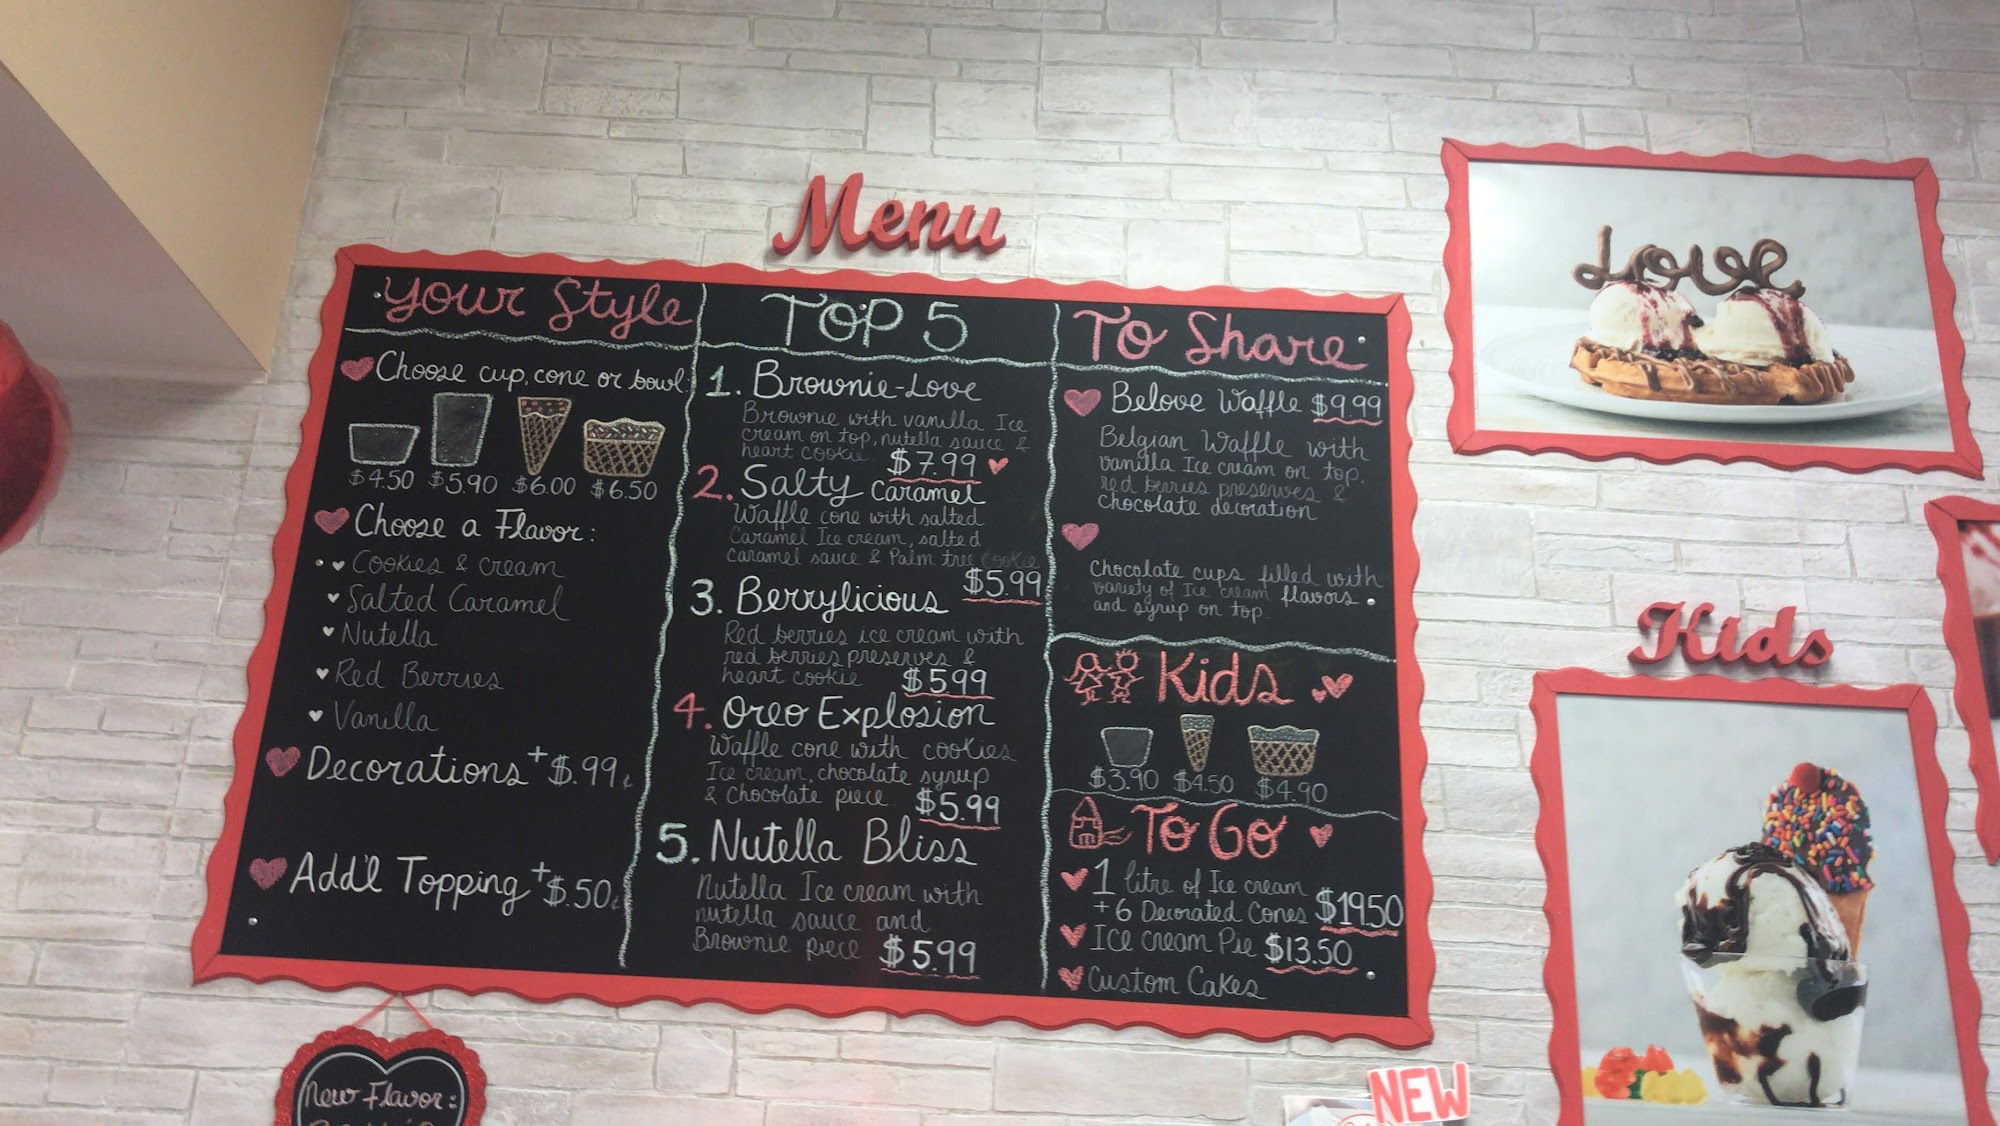 Menu
Your Style
Choose cup, cone or bowl:
$4.50 $5.90 $6.00 $6.50
Choose a Flavor:
Cookies & cream
Salted Caramel
Nutella
Red Berries
Vanilla
Decorations +$.99¢
Add'l Topping +$.50¢
TOP 5
1. Brownie-Love
Brownie with vanilla Ice
cream on top, nutella sauce &
heart cookie $7.99
2. Salty Caramel
Waffle cone with salted
Caramel Ice cream, salted
caramel sauce & Palm tree cookie
$5.99
3. Berrylicious
Red berries ice cream with
red berries preserves &
heart cookie $5.99
4. Oreo Explosion
Waffle cone with cookies
Ice cream, chocolate syrup
& Chocolate piece $5.99
5. Nutella Bliss
Nutella Ice cream with
nutella sauce and
Brownie piece $5.99
To Share
Belove Waffle $9.99
Belgian Waffle with
vanilla Ice cream on top.
red berries preserves &
Chocolate decoration
Chocolate cups filled with
variety of Ice cream flavors
and syrup on top.
Kids
$3.90 $4.50 $4.90
To Go
1 litre of Ice cream
+6 Decorated Cones $19.50
Ice cream Pie $13.50
Custom Cakes
Love
Kids
New Flavor:
NEW